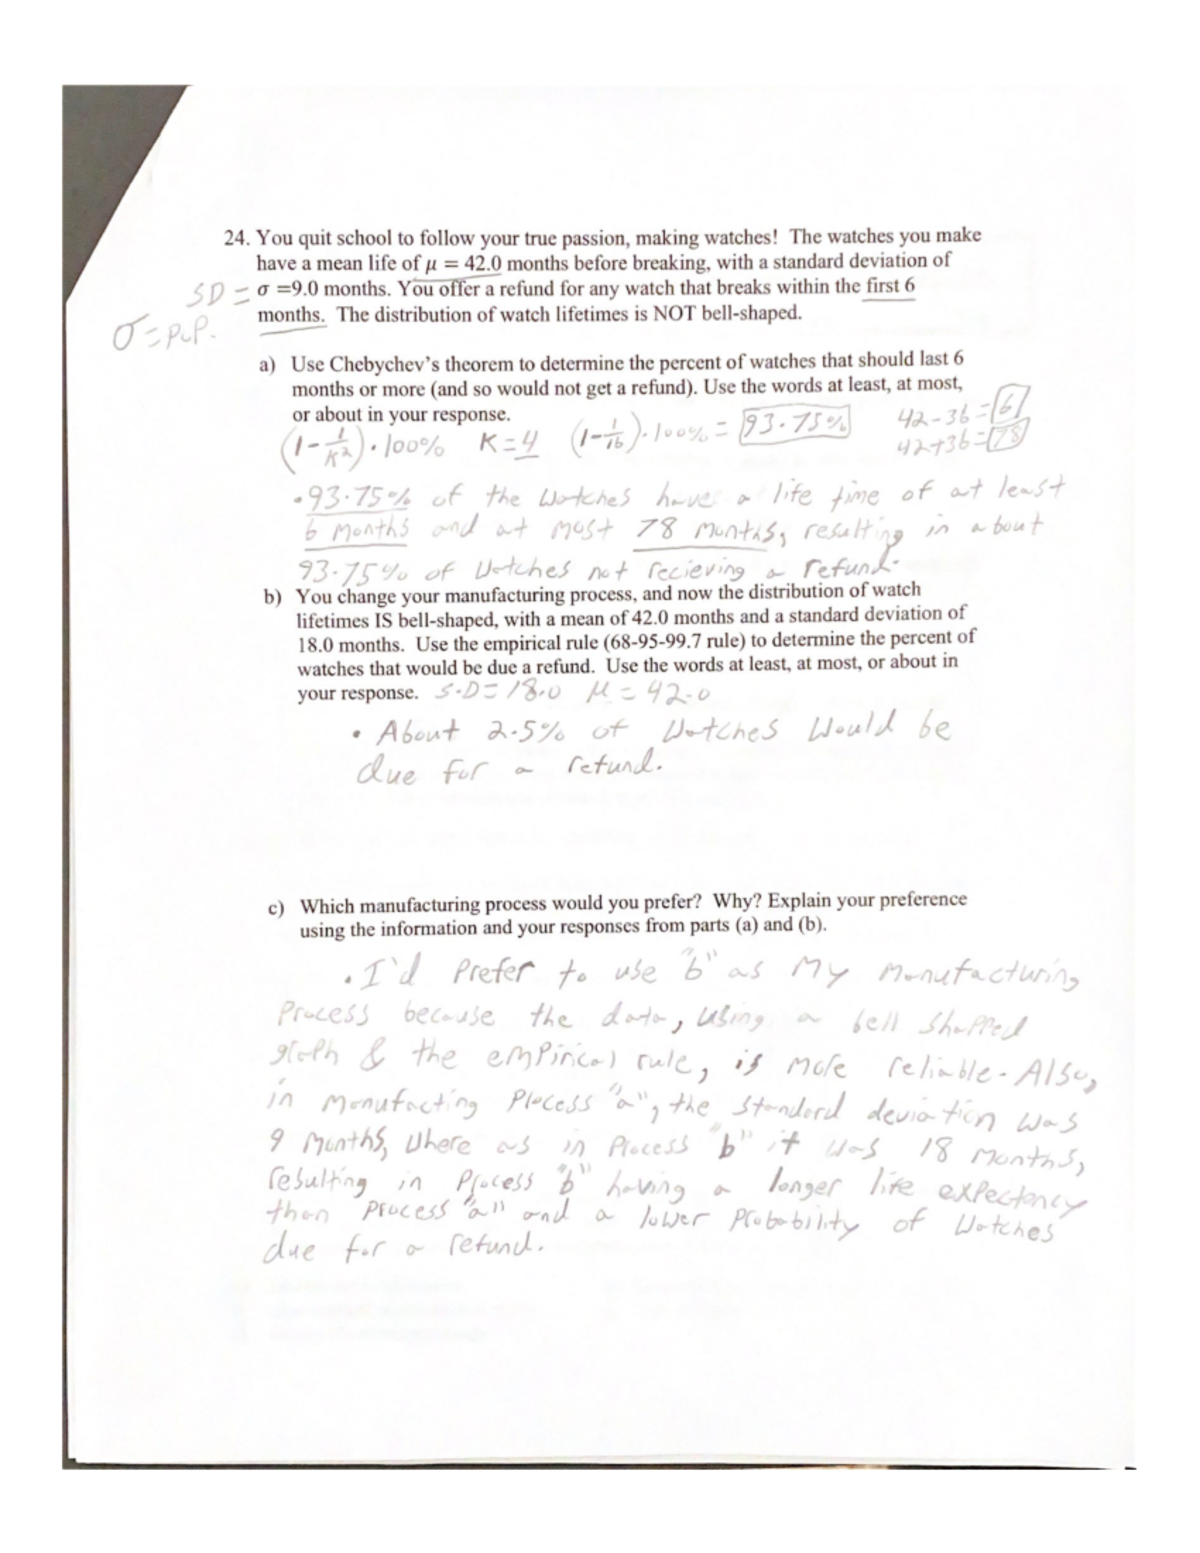 24. You quit school to follow your true passion, making watches! The watches you make
have a mean life of μ = 42.0 months before breaking, with a standard deviation of
SD = σ =9.0 months. You offer a refund for any watch that breaks within the first 6
months. The distribution of watch lifetimes is NOT bell-shaped.
σ = pop.
a) Use Chebychev's theorem to determine the percent of watches that should last 6
months or more (and so would not get a refund). Use the words at least, at most,
or about in your response.
(1-1/K²)·100% K=4 (1-1/16)·100% = 93.75%
42-36=6
42+36=78
·93.75% of the watches have a life time of at least
6 months and at most 78 months, resulting in about
93.75% of watches not recieving a refund.
b) You change your manufacturing process, and now the distribution of watch
lifetimes IS bell-shaped, with a mean of 42.0 months and a standard deviation of
18.0 months. Use the empirical rule (68-95-99.7 rule) to determine the percent of
watches that would be due a refund. Use the words at least, at most, or about in
your response. S.D=18.0 μ=42.0
• About 2.5% of watches would be
due for a refund.
c) Which manufacturing process would you prefer? Why? Explain your preference
using the information and your responses from parts (a) and (b).
•I'd Prefer to use "b" as my manufacturing
process because the data, using a bell shapped
graph & the empirical rule, is more reliable. Also,
in manufacting process "a", the standard deviation was
9 months, where as in process "b" it was 18 months,
resulting in process "b" having a longer life expectency
than process "a" and a lower probability of watches
due for a refund.